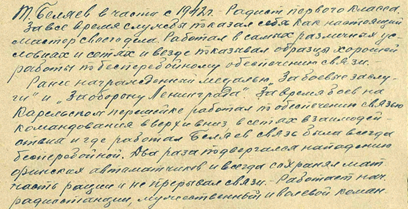 Т. Беляев в части с 1942г. Радист первого класса.
За все время службы показал себя как настоящий
мастер своего дела. Работал в самых различных ус-
ловиях и сетях и везде показывал образцы хорошей
работы по бесперебойному обеспечению связи.
Ранее награжден был медалью „За боевые заслу-
ги" и „За оборону Ленинграда". За время боев на
Карельском перешейке работал по обеспечению связью
командования вверх и вниз в сетях взаимодей
ствия и где работал Беляев связь была всегда
бесперебойной. Два раза подвергался нападению
финских автоматчиков и всегда сохранял мат
часть рации и не прерывал связи. Работает нач.
радиостанции, мужественный и волевой коман.